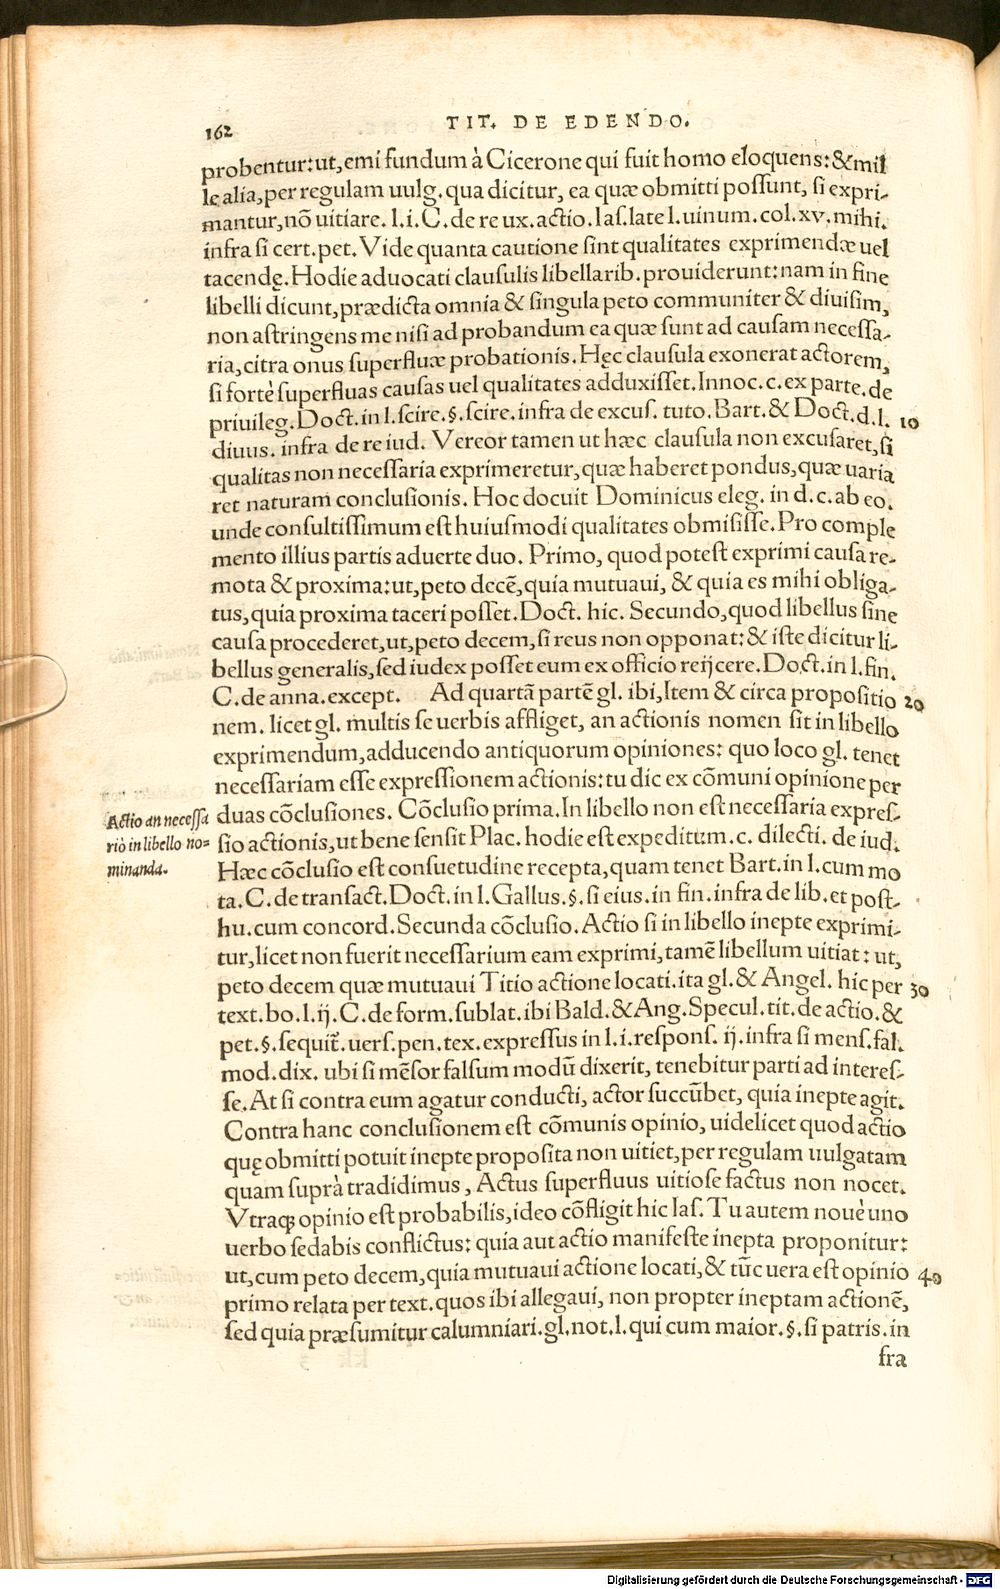 162 TIT. DE EDENDO.
probentur:ut,emi fundum à Cicerone qui fuit homo eloquens:&mil
le alia,per regulam uulg.qua dicitur, ea quæ obmitti possunt, si expri-
mantur,nō uitiare.l.i.C.de re ux.actio.Ias.late l.uinum.col.xv.mihi.
infra si cert.pet.Vide quanta cautione sint qualitates exprimendæ uel
tacendę.Hodie aduocati clausulis libellarib.prouiderunt:nam in fine
libelli dicunt,prædicta omnia & singula peto communiter & diuisim,
non astringens me nisi ad probandum ea quæ sunt ad causam necessa-
ria,citra onus superfluæ probationis.Hęc clausula exonerat actorem,
si fortè superfluas causas uel qualitates adduxisset.Innoc.c.ex parte.de
priuileg.Doct.in l.scire.§.scire.infra de excus. tuto.Bart.& Doct.d.l. 10
diuus. infra de re iud. Vereor tamen ut hæc clausula non excusaret,si
qualitas non necessaria exprimeretur,quæ haberet pondus,quæ uaria
ret naturam conclusionis. Hoc docuit Dominicus eleg. in d.c.ab eo.
unde consultissimum est huiusmodi qualitates obmisisse.Pro comple
mento illius partis aduerte duo. Primo, quod potest exprimi causa re-
mota & proxima:ut,peto decē,quia mutuaui, & quia es mihi obliga-
tus,quia proxima taceri posset.Doct. hic. Secundo,quod libellus sine
causa procederet,ut,peto decem,si reus non opponat:& iste dicitur li-
bellus generalis,sed iudex posset eum ex officio reijcere.Doct.in l.fin.
C.de anna.except. Ad quartā partē gl. ibi,Item & circa propositio 20
nem. licet gl. multis se uerbis affliget, an actionis nomen sit in libello
exprimendum,adducendo antiquorum opiniones: quo loco gl. tenet
necessariam esse expressionem actionis:tu dic ex cōmuni opinione per
Actio an necessa
riò in libello no=
minanda.
duas cōclusiones. Cōclusio prima.In libello non est necessaria expres-
sio actionis,ut bene sensit Plac. hodie est expeditum.c. dilecti. de iud.
Hæc cōclusio est consuetudine recepta,quam tenet Bart.in l.cum mo
ta.C.de transact.Doct.in l.Gallus.§.si eius.in fin.infra de lib.et post-
hu.cum concord.Secunda cōclusio.Actio si in libello inepte exprimi-
tur,licet non fuerit necessarium eam exprimi,tamē libellum uitiat: ut,
peto decem quæ mutuaui Titio actione locati.ita gl.& Angel. hic per 30
text.bo.l.ij.C.de form.sublat.ibi Bald.&Ang.Specul.tit.de actio.&
pet.§.sequit̃.uers.pen.tex.expressus in l.i.respons. ij.infra si mens.fal.
mod.dix. ubi si mēsor falsum modū dixerit, tenebitur parti ad interes-
se.At si contra eum agatur conducti, actor succūbet, quia inepte agit.
Contra hanc conclusionem est cōmunis opinio, uidelicet quod actio
quę obmitti potuit inepte proposita non uitiet,per regulam uulgatam
quam suprà tradidimus, Actus superfluus uitiose factus non nocet.
Vtraqꝫ opinio est probabilis,ideo cōfligit hic Ias.Tu autem nouè uno
uerbo sedabis conflictus: quia aut actio manifeste inepta proponitur:
ut,cum peto decem,quia mutuaui actione locati,& tūc uera est opinio 40
primo relata per text.quos ibi allegaui, non propter ineptam actionē,
sed quia præsumitur calumniari.gl.not.l.qui cum maior.§.si patris.in
fra
Digitalisierung gefördert durch die Deutsche Forschungsgemeinschaft - DFG